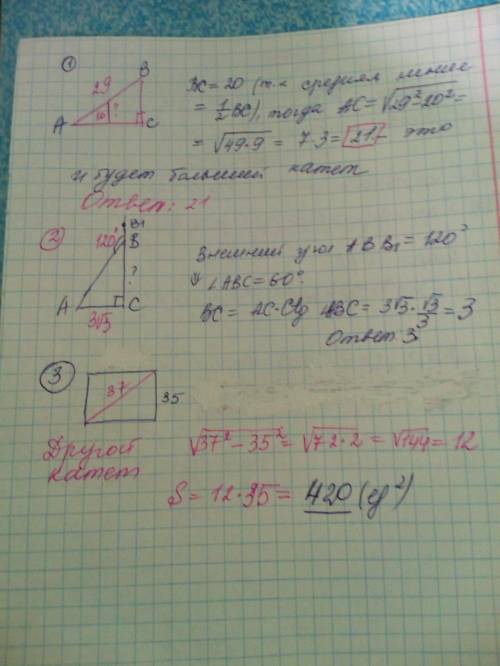 1
29
B
10
?
A
C
BC = 20 (т.к средняя линия
= 1/2 BC), тогда AC = √29²-20² =
= √49·9 = 7·3 = 21 - это
и будет больший катет
Ответ: 21
2
B1
120°
B
?
A
C
3√3
Внешний угол ABB1 = 120°
∠ABC = 60°.
BC = AC·Ctg ABC = 3√3·√3/3 = 3
Ответ 3
3
37
35
Другой
катет
√37² - 35² = √72·2 = √144 = 12
S = 12·35 = 420